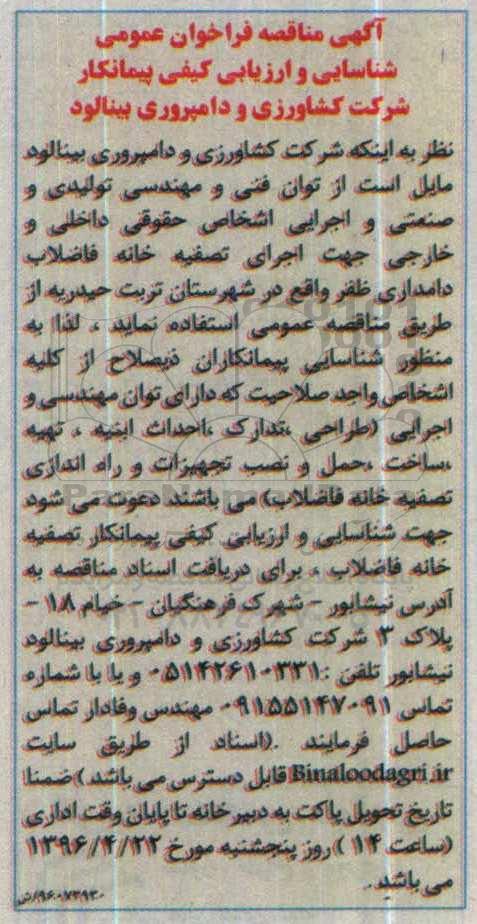 آگهی مناقصه فراخوان عمومی
شناسایی و ارزیابی کیفی پیمانکار
شرکت کشاورزی و دامپروری بینالود
نظر به اینکه شرکت کشاورزی و دامپروری بینالود
مایل است از توان فنی و مهندسی تولیدی و
صنعتی و اجرایی اشخاص حقوقی داخلی و
خارجی جهت اجرای تصفیه خانه فاضلاب
دامداری ظفر واقع در شهرستان تربت حیدریه از
طریق مناقصه عمومی استفاده نماید ، لذا به
منظور شناسایی پیمانکاران ذیصلاح از کلیه
اشخاص واجد صلاحیت که دارای توان مهندسی و
اجرایی (طراحی ،تدارک ،احداث ابنیه ، تهیه
،ساخت ،حمل و نصب تجهیزات و راه اندازی
تصفیه خانه فاضلاب) می باشند دعوت می شود
جهت شناسایی و ارزیابی کیفی پیمانکار تصفیه
خانه فاضلاب ، برای دریافت اسناد مناقصه به
آدرس نیشابور - شهرک فرهنگیان - خیام ۱۸ -
پلاک ۳ شرکت کشاورزی و دامپروری بینالود
نیشابور تلفن :۰۵۱۴۲۶۱۰۳۳۱ و یا با شماره
تماس ۰۹۱۵۵۱۴۷۰۹۱ مهندس وفادار تماس
حاصل فرمایند .(اسناد از طریق سایت
Binaloodagri.ir قابل دسترس می باشد ) ضمنا
تاریخ تحویل پاکت به دبیرخانه تا پایان وقت اداری
(ساعت ۱۴ ) روز پنجشنبه مورخ ۱۳۹۶/۴/۲۲
می باشد .
۹۶۰۷۳۹۳۰/ش